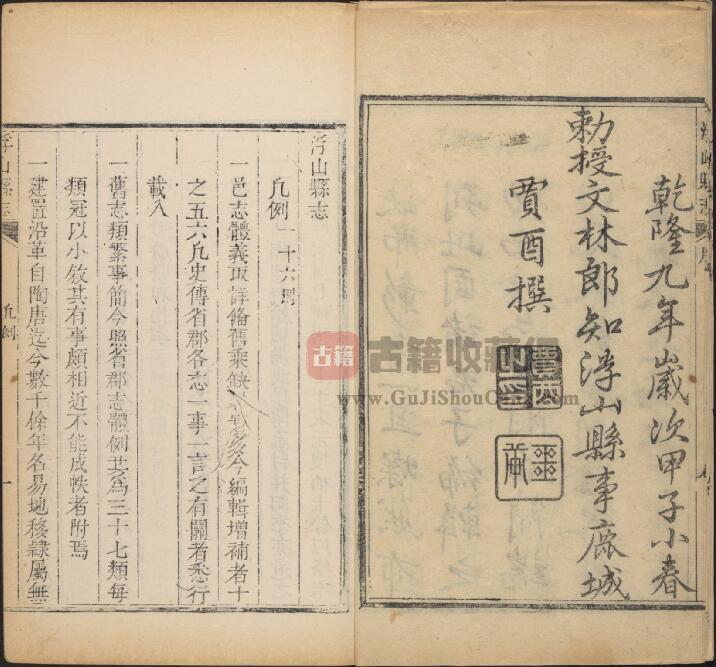 乾隆九年歲次甲子小春
勅授文林郎知浮山縣事鹿城
賈酉撰
浮山縣志
凡例 二十六則
一邑志體義取詳備舊乘缺今編輯增補者十
之五六凡史傳省郡各志一事一言之有關者悉行
載入
一舊志類繁事簡今照省郡志體例共為三十七類每
類冠以小敘其有事頗相近不能成帙者附焉
一建置沿革自陶唐迄今數千餘年名易地移隸屬無
浮山縣志
凡例
一
古籍
古籍收藏
www.GuJiShouCang.com